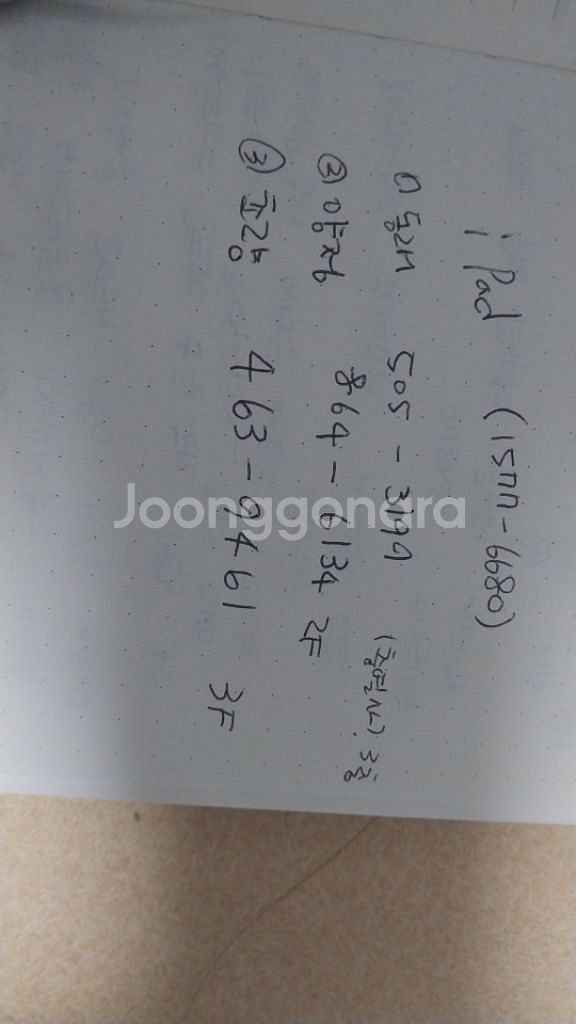 iPad (1577-6680)
① 동래 505-3199 (충렬사) 3층
② 양재 864-6134 2F
③ 프랑 463-9461 3F
Joonggonara